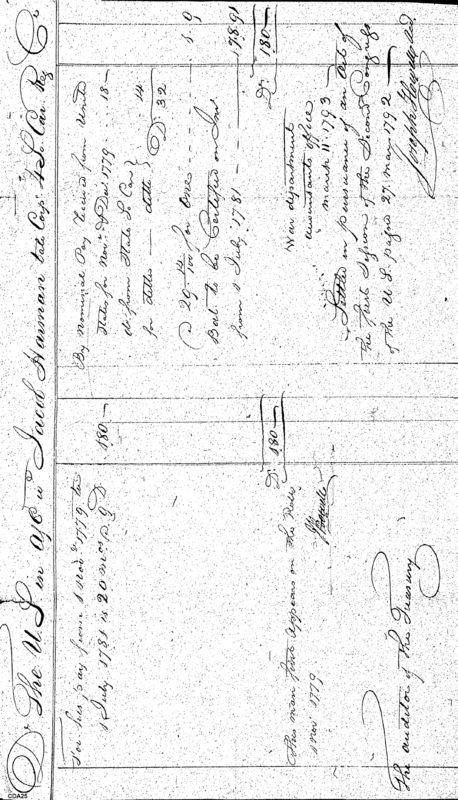 Dr The U S in a/c w Jacob Harman late Corpl 4 So Car Reg Cr
For his pay from 1 Nov 1779 to
1 July 1781 is 20 mos @ 9 D 180 —
Ds 180 —
This man first appears on the Rolls
1 Nov 1779
The auditor of the Treasury
By nominal Pay received from United
States for Novr & Decr 1779 18 —
do from State So Car }
for ditto — ditto } 14
D 32
@ 29 14/100 for One 1. 9
Balt to be Certified on Int
from 1 July 1781 178.91
Ds 180 —
War department
accountants office
March 11th 1793
Settled in pursuance of an Act of
the first Session of the Second Congress
of the U S passed 27 May 1792 —
Joseph Howell
CDA25